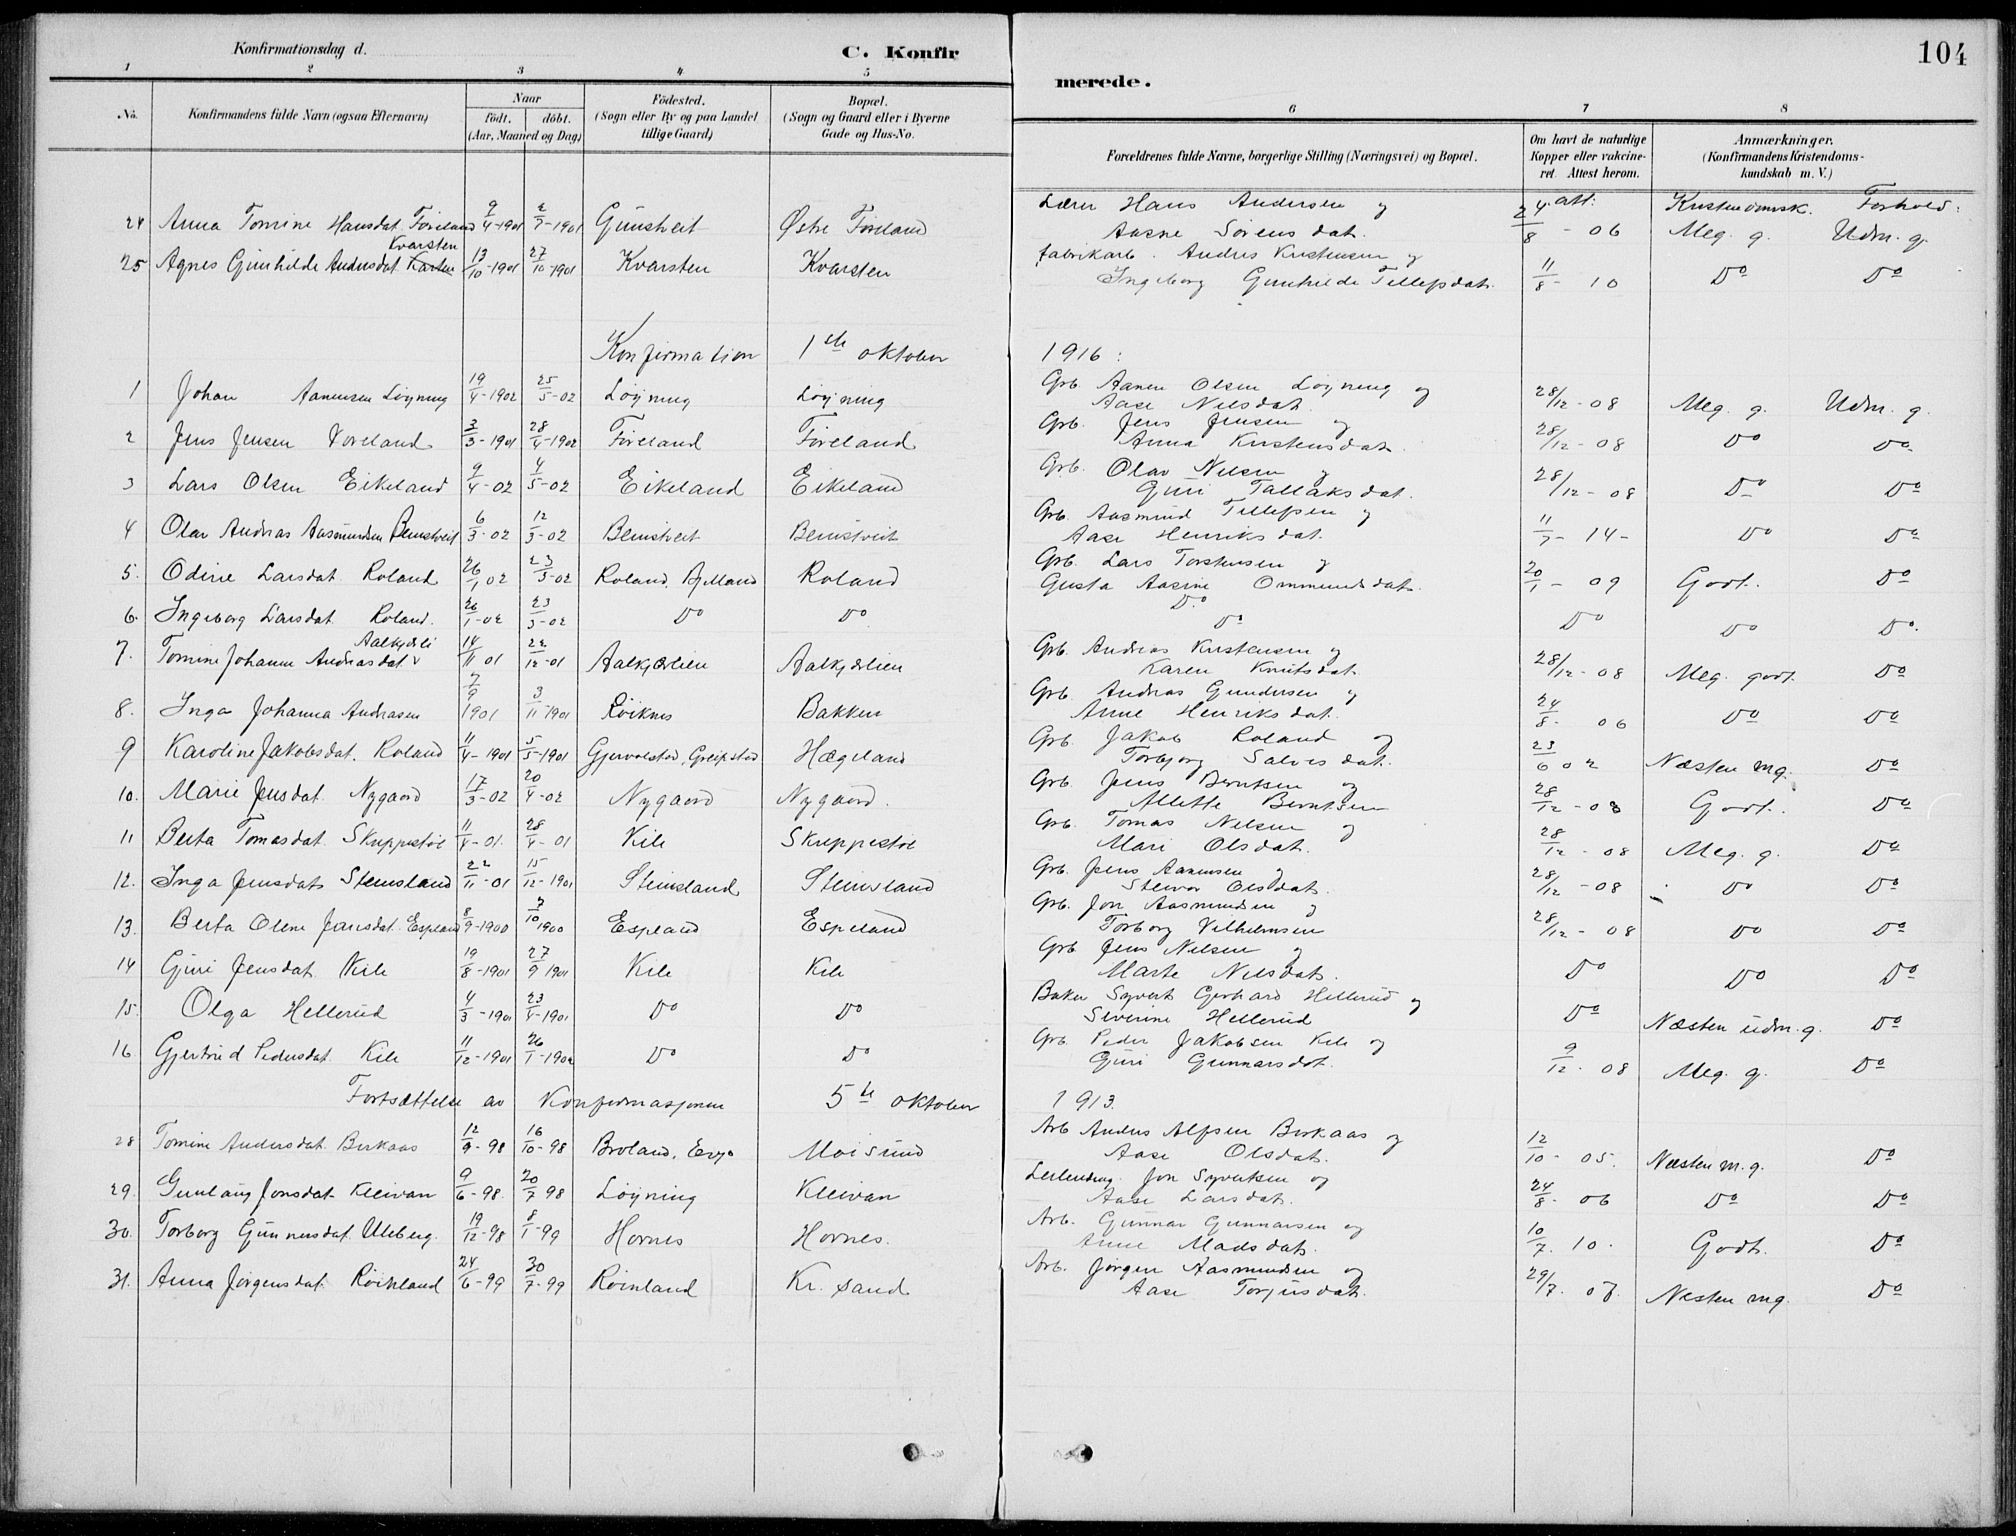 Konfirmationsdag d.
C. Konfir
merede.
104
1 2 3 4 5 6 7 8
No. Konfirmandens fulde Navn (ogsaa Efternavn) Naar födt. döbt. (Aar, Maaned og Dag) Födested. (Sogn eller By og paa Landet tillige Gaard) Bopæl. (Sogn og Gaard eller i Byerne Gade og Hus-No. Forældrenes fulde Navne, borgerlige Stilling (Næringsvei) og Bopæl. Om havt de naturlige Kopper eller vakcineret. Attest herom. Anmærkninger. (Konfirmandens Kristendomskundskab m. V.)
att: Kristendomsk. Forhold:
24 Anna Tomine Hansdat. Föreland 9/4-1901 2/7-1901 Gunstveit Østre Föreland Lærer Hans Andersen og Aasne Sörensdat. 24/8 - 06 Meg. g. Udm. g.
25 Agnes Gunhilde Andersdat. Kvarsten 13/10-1901 27/10-1901 Kvarsten Kvarsten Fabrikarb. Anders Kristensen og Ingeborg Gunhilde Tellefsdat. 11/8 - 10 Do Do
Konfirmation 1ste oktober 1916:
1 Johan Aanensen Löyning 19/4-1902 25/5-02 Löyning Löyning Grb. Aanen Olsen Löyning og Aase Nilsdat. 28/12-08 Meg. g. Udm. g.
2 Jens Jensen Voreland 3/3-1901 28/4-1902 Föreland Föreland Grb. Jens Jensen og Anna Kristensdat. 28/12-08 Do Do
3 Lars Olsen Eikeland 9/4-02 4/5-02 Eikeland Eikeland Grb. Olav Nilsen og Guri Tallaksdat. 28/12-08 Do Do
4 Olav Andreas Aasmundsen Beinstveit 6/3-02 12/3-02 Beinstveit Beinstveit Grb. Aasmund Tellefsen og Aase Henriksdat. 11/7-14- Do Do
5. Odine Larsdat. Roland 26/1 02 23/3-02 Roland, Bjelland Roland Grb. Lars Torstensen og Gusta Aasine Ommundsdat. 20/1-09 Godt. Do
6. Ingeborg Larsdat. Roland. 26/1-02 23/3-02 Do Do Do Do Do Do Do.
7. Tomine Johanne Andreasdat. Aalkjærli 14/11 01 22/12-01 Aalkjærlien Aalkjærlien Grb. Andreas Kristensen og Karen Knutsdat. 28/12-08 Meg. godt. Do
8. Inga Johanna Andreasen 7/9 1901 3/11 1901 Röiknes Bakken Grb. Andreas Gundersen og Anne Henriksdat. 24/8-06 Do Do
9 Karoline Jakobsdat. Roland 11/4-1901 5/5-1901 Gjervolstad, Greipstad Hægeland Grb. Jakob Roland og Torbjorg Salvesdat. 23/6 02 Næsten mg. Do
10. Marie Jensdat. Nygaard 17/3-02 20/4-02 Nygaard Nygaard. Grb. Jens Berntsen og Allette Berntsen 28/12-08 Godt. Do
11 Berta Tomasdat. Skreppestöl 11/4-01. 28/4-01 Kile Skreppestöl Grb. Tomas Nilsen og Mari Olsdat. 28/12-08 Meg. g. Do
12. Inga Jensdat. Steinsland 22/11-01 15/12-1901 Steinsland Steinsland Grb. Jens Aanensen og Steinvor Olsdat. 28/12-08 Do Do
13. Berta Olene Jonsdat. Espeland 8/9-1900 7/10 1900 Espeland Espeland Grb. Jon Aasmundsen og Torborg Vilhelmsen 28/12-08 Do Do
14 Guri Jensdat. Kile 19/8-1901 27/9 1901 Kile Kile Grb Jens Nilsen og Marte Nilsdat. Do Do Do
15. Olga Hellerud 4/3-1901 23/4-1901 Do Do Baker Syvert Gerhard Hellerud og Severine Hellerud Do Næsten udm. g. Do
16 Gjertrud Pedersdat. Kile 11/12-1901 26/1-1902 Do Do Grb. Peder Jakobsen Kile og Guri Gunnarsdat. 9/12-08 Meg. g. Do
Fortsættelse av Konfirmasjonen 5te oktober 1913.
28 Tomine Andersdat. Birkaas 12/9-98 16/10-98 Broland, Evje Moisund Arb. Anders Alfsen Birkaas og Aase Olsdat. 12/10-05. Næsten m. g. Do
29. Gunlaug Jonsdat. Kleivan 9/6-98. 20/7 98 Löyning Kleivan Leilending Jon Syvertsen og Aase Larsdat. 24/8-06 Do Do
30. Torborg Gunnersdat. Uleberg. 19/12-98 8/1-99 Hornes Hornes. Arb. Gunnar Gunnarsen og Anne Madsdat. 10/7. 10. Godt. Do
31. Anna Jörgensdat. Röinland 24/6-99 30/7-99 Röinland Kr. sand Arb. Jörgen Aasmundsen og Aase Torjusdat. 29/7. 07. Næsten mg. Do